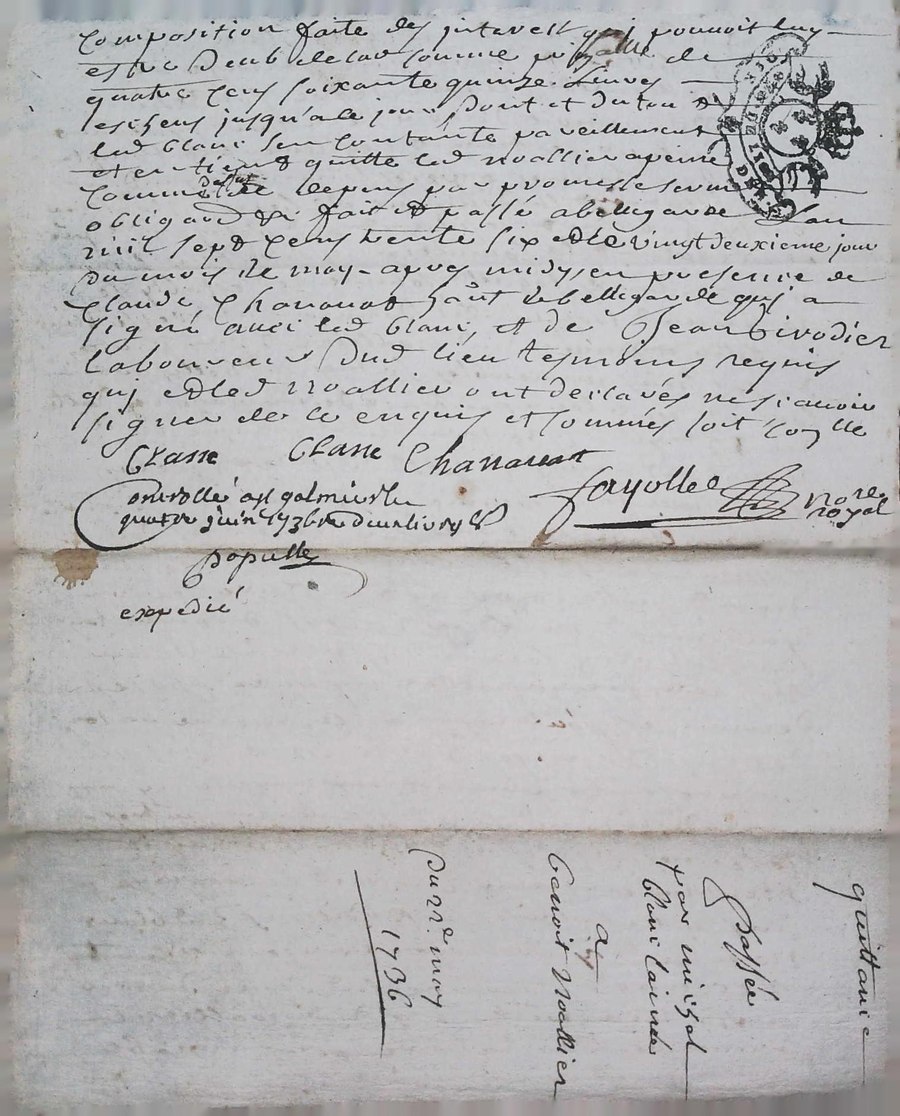 composition faite des interest qui pouvoit luy
estre deub de lad somme principalle de
quatre cens soixante quinze livres
escheus jusqu'a ce jour dont et du tout
led blanc sen contante pareillement
et en tient quitte led noallier a peine
comme dessus de depens par promesse serm
obligaon &a fait et passé a bellegarde Lan
mil sept cens trente six et le vingt deuxieme jour
du mois de may apres midy en presence de
Claude Chanavat de bellegarde qui a
signé avec led blanc, et de Jean Girodier
laboureur dud lieu tesmoins requis
qui et led noallier ont desclarés ne scavoir
signer de ce enquis et sommés soit coñlle
BLanc BLanc Chanavat
Fayolle no.re royal
Controllé a st galmier le
quatre juin 1736 re
populle
expedié
quittance
Passée
par michel
blanc lainée
a
benoit Noallier
Du 22.e may
1736